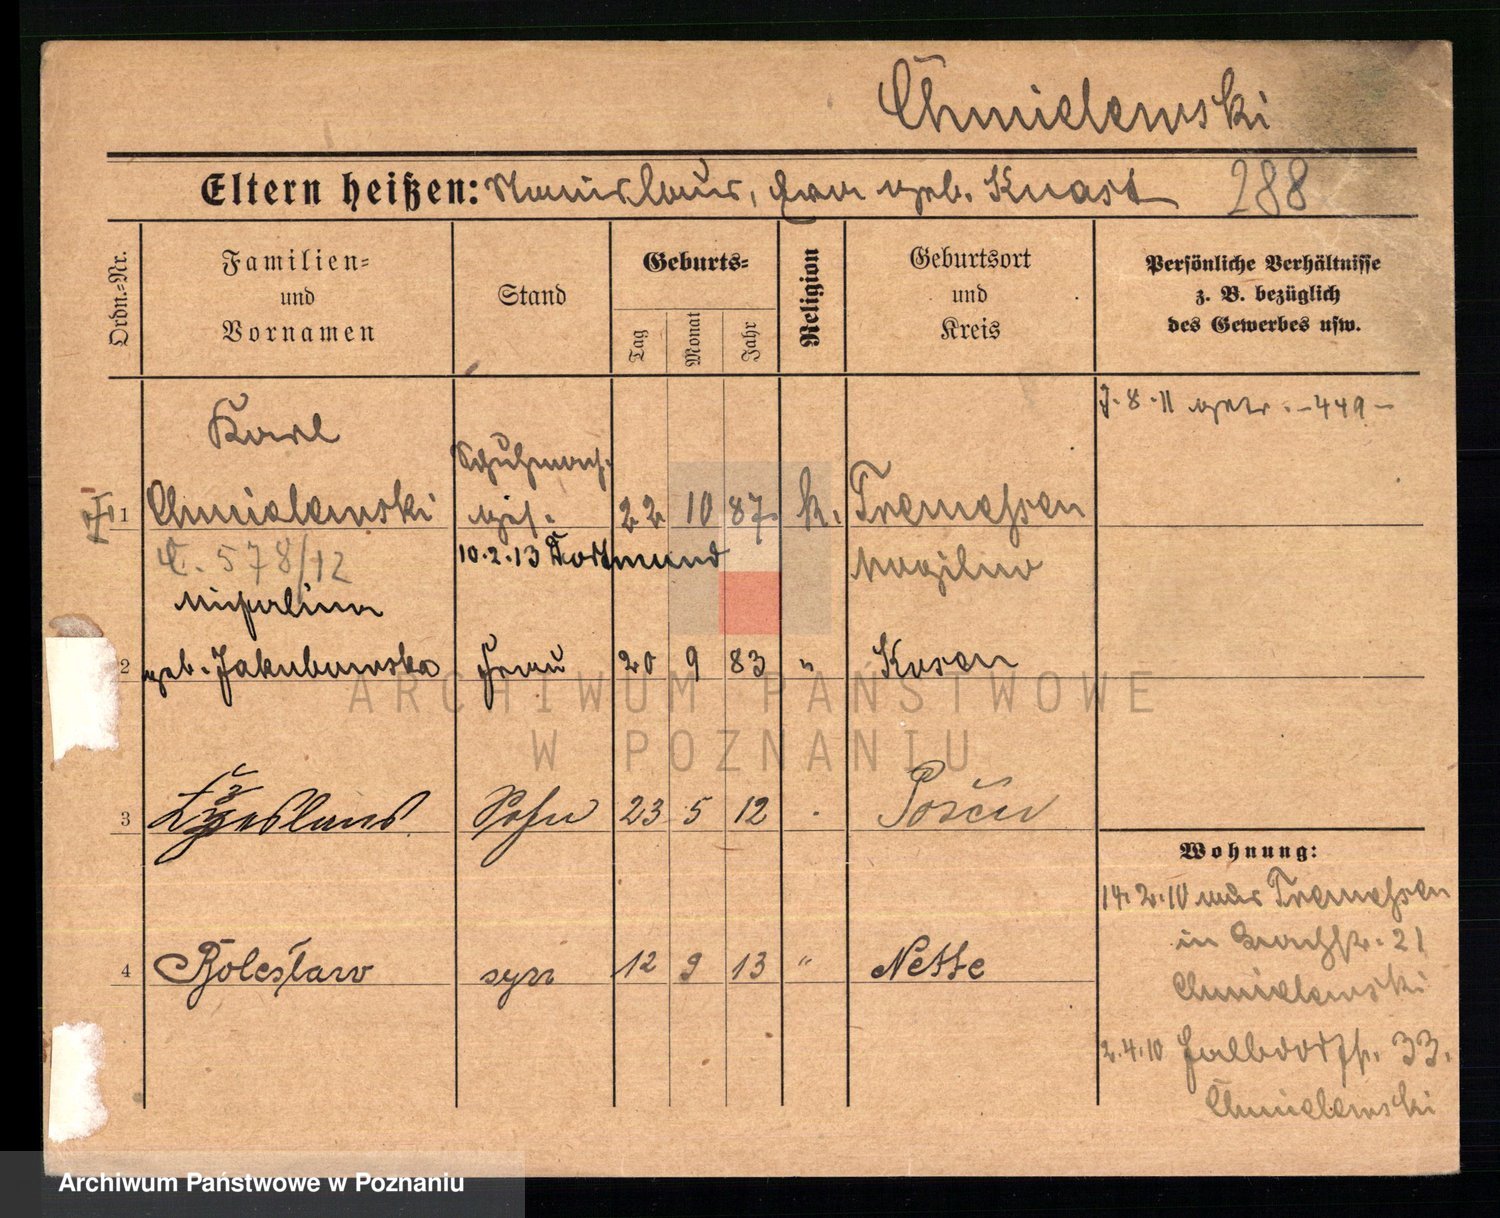 Chmielewski
Eltern heißen: Stanislaus, Eva geb. Knast 288
Ordn.-Nr.
Familien- und Vornamen
Stand
Geburts-
Tag Monat Jahr
Religion
Geburtsort und Kreis
Persönliche Verhältnisse z. B. bezüglich des Gewerbes usw.
7.8.11 getr. -449-
Karl
Schuhmach.
1 Chmielewski ges. 22 10 87. k. Tremessen
578/12 10.2.13 Dortmund Mogilno
Michalina
2 geb. Jakubowska Frau 20 9 83 " Kosen
3 Sohn 23 5 12 Posen
Wohnung:
14.2.10 aus Tremessen
in 21
Chmielewski
4 Bolesław syn 12 9 13 " Nette
2.4.10 33.
Chmielewski
ARCHIWUM PAŃSTWOWE
W POZNANIU
Archiwum Państwowe w Poznaniu